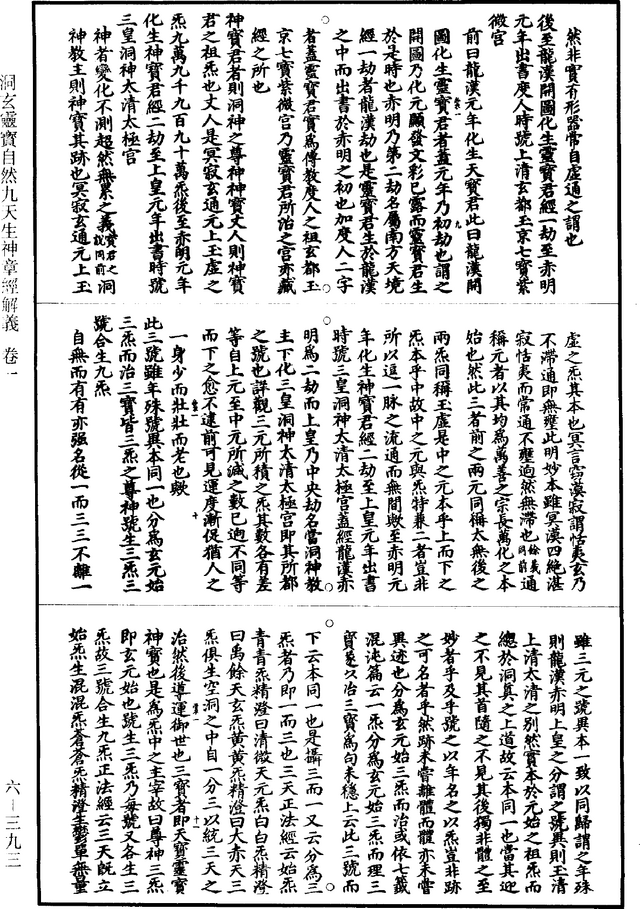 然非實有形器常自虛通之謂也
後至龍漢開圖化生靈寶君經一劫至赤明
元年出書度人時號上清玄都玉京七寶紫
微宮
前曰龍漢元年化生天寶君此曰龍漢開
圖化生靈寶君者蓋元年乃初劫也謂之
開圖乃化元顯發文彩已露而靈寶君生
於是時也赤明乃第二劫名屬南方天境
經一劫者龍漢劫也是靈寶君生於龍漢
之中而出書於赤明之初也加度人二字
者蓋靈寶君實為傳教度人之祖玄都玉
京七寶紫微宮乃靈寶君所治之宮亦藏
經之所也
神寶君者則洞神之尊神神寶丈人則神寶
君之祖炁也丈人是冥寂玄通元上玉虛之
炁九萬九千九百九十萬炁後至赤明元年
化生神寶君經二劫至上皇元年出書時號
三皇洞神太清太極宮
神者變化不測超然無累之義寶君之說同前洞
神教主則神寶其跡也冥寂玄通元上玉
虛之炁其本也冥言窈漠寂謂恬夷玄乃
不滯通即無壅此明妙本雖冥漠四絕湛
寂恬夷而常通不壅逈然無滯也餘義同前通
稱元者以其均為萬善之宗長萬化之本
始也然此三者前之兩元同稱太無後之
兩炁同稱玉虛是中之元本乎上而下之
炁本乎中故中之元與炁特兼二者豈非
所以這一脉之流通而無間歟至赤明元
年化生神寶君經二劫至上皇元年出書
時號三皇洞神太清太極宮蓋經龍漢赤
明為二劫而上皇乃中央劫名當洞神教
主下化三皇洞神太清太極宮即其所都
之號也詳觀三元所積之炁其數各有差
等自上元至中元所減之數已逈不同等
而下之愈不逮前可見運度漸促猶人之
一身少而壯壯而老也歟
此三號雖年殊號異本同一也分為玄元始
三炁而治三寶皆三炁之尊神號生三炁三
號合生九炁
自無而有有亦强名從一而三三不離一
雖三元之號異本一致以同歸謂之年殊
則龍漢赤明上皇之分謂之號異則玉清
上清太清之別然實本於元始之祖炁而
總於洞真之上道故云本同一也當其迎
之不見其首隨之不見其後獨非體之至
妙者乎及乎號之以年名之以炁豈非跡
之可名者乎然跡未嘗離體而體亦未嘗
異迹也分為玄元始三炁而治或依七籤
混沌篇云一炁分為玄元始三炁而理三
寶遂以治三寶為句未穩上云此三號而
下云本同一也是攝三而一又云分為三
炁者乃即一而三也三天正法經云始炁
青青炁精澄曰清微天元炁白白炁精澄
曰禹餘天玄炁黃黃炁精澄曰大赤天三
炁俱生空洞之中自一分三以統三天之
治然後導運御世也三寶者即天寶靈寶
神寶也是為炁中之主宰故曰尊神三炁
即玄元始也號生三炁乃每號又各生三
炁故三號合生九炁正法經云三天既立
始炁生混混炁蒼蒼炁精澄生鬱單無量
洞玄靈寶自然九天生神章經解義 卷一
六-三九三